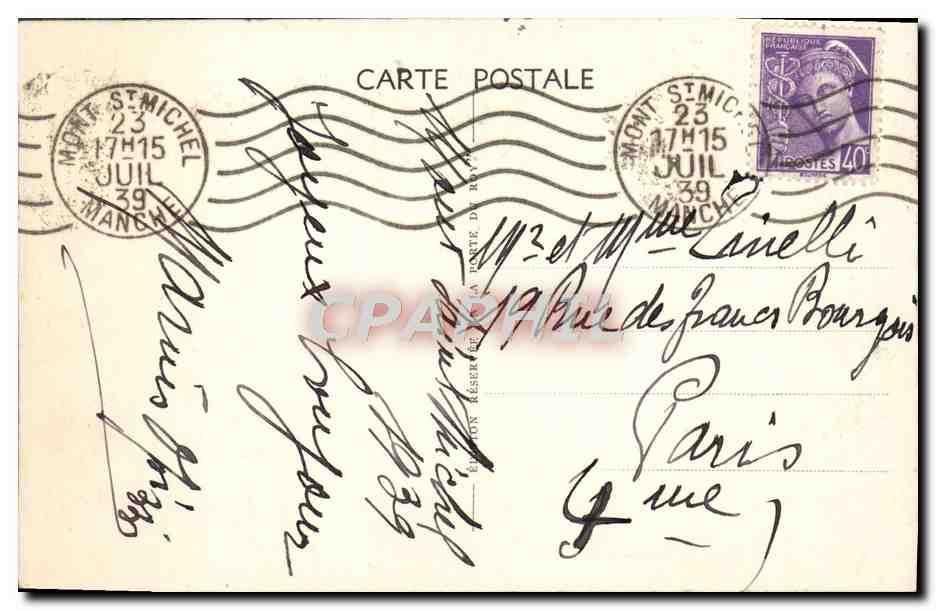 CARTE POSTALE
MONT ST MICHEL
23
17H15
JUIL
39
MANCHE
MONT ST MICHEL
23
17H15
JUIL
39
MANCHE
RÉPUBLIQUE
FRANÇAISE
POSTES
40c
Mont Saint Michel
1939
Joyeux bonjour
ÉDITION RÉSERVÉE A LA PORTE DU ROY
Mr et Mme Linelli
19 Rue des francs Bourgois
Paris
4me
CPAPHIL